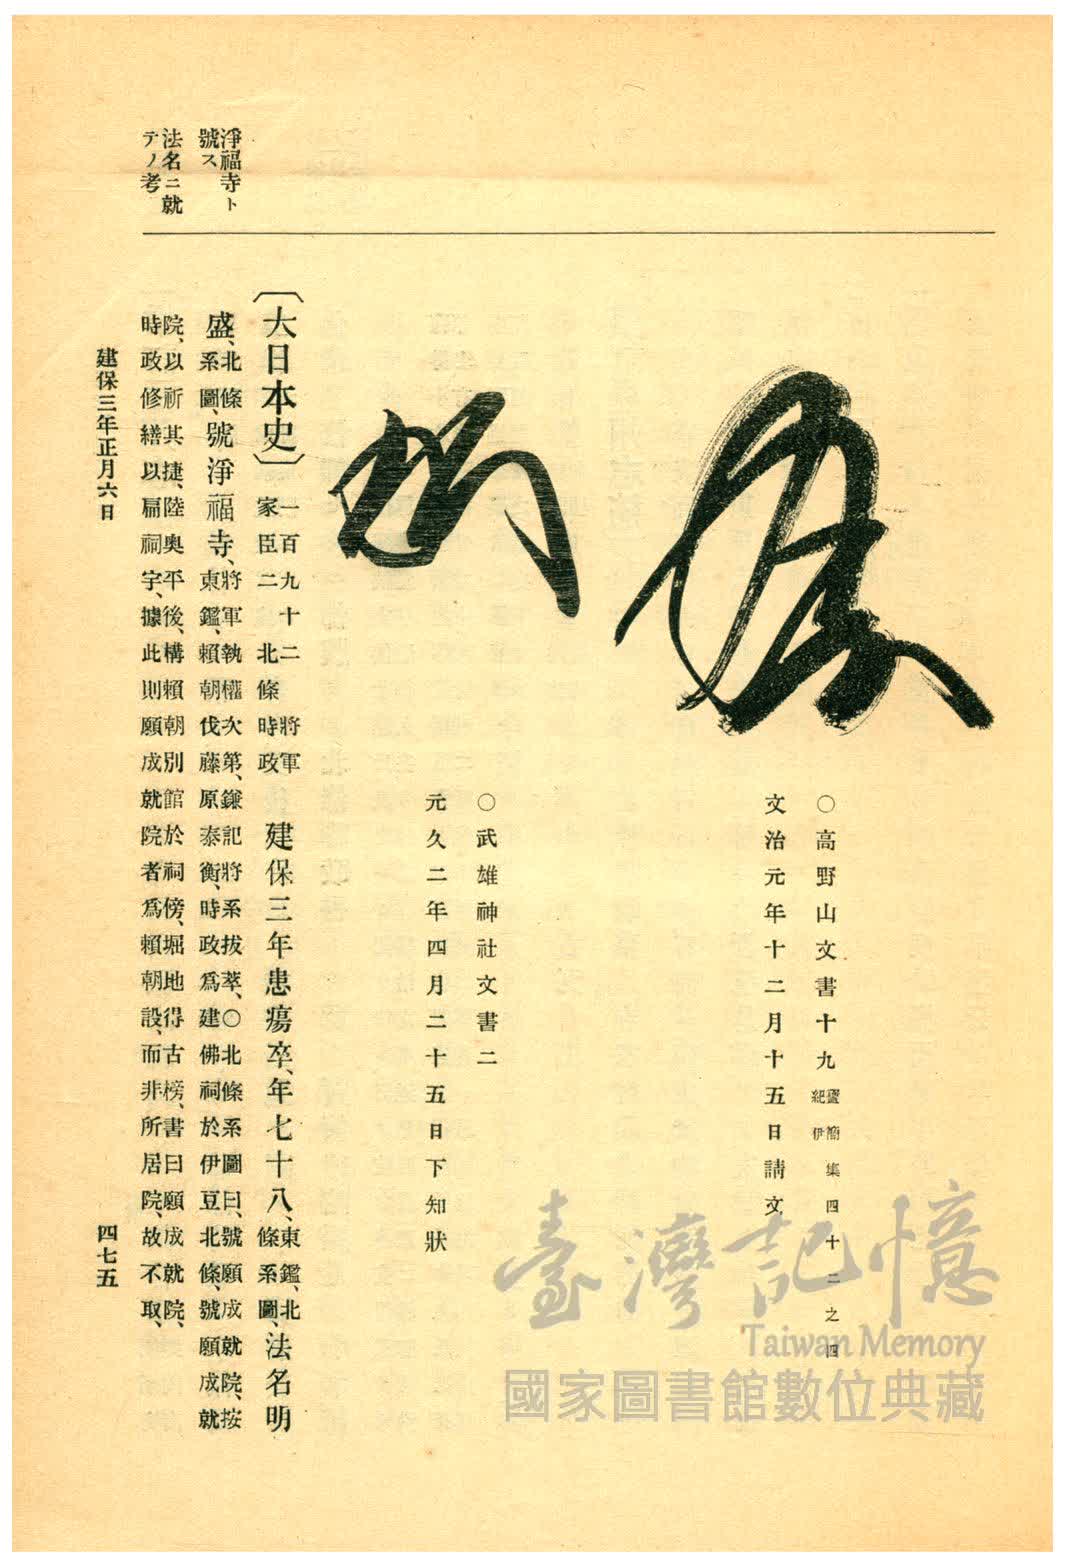 淨福寺ト
號ス
法名ニ就
テノ考
○高野山文書十九 寶簡集四十二之四
紀伊
文治元年十二月十五日請文
○武雄神社文書二
元久二年四月二十五日下知狀
〔大日本史〕 一百九十二 將軍家臣二 北條時政 建保三年患瘍卒、年七十八、東鑑、北條系圖、法名明
盛、北條系圖、號淨福寺、將軍執權次第、鎌記將系拔萃、○北條系圖曰、號願成就院、按
東鑑、賴朝伐藤原泰衡、時政爲建佛祠於伊豆北條、號願成就
院、以祈其捷、陸奧平後、構賴朝別館於祠傍、堀地得古榜、書曰願成就院、
時政修繕以扁祠宇、據此則願成就院者爲賴朝設、而非所居院、故不取、
建保三年正月六日
四七五
臺灣記憶
Taiwan Memory
國家圖書館數位典藏